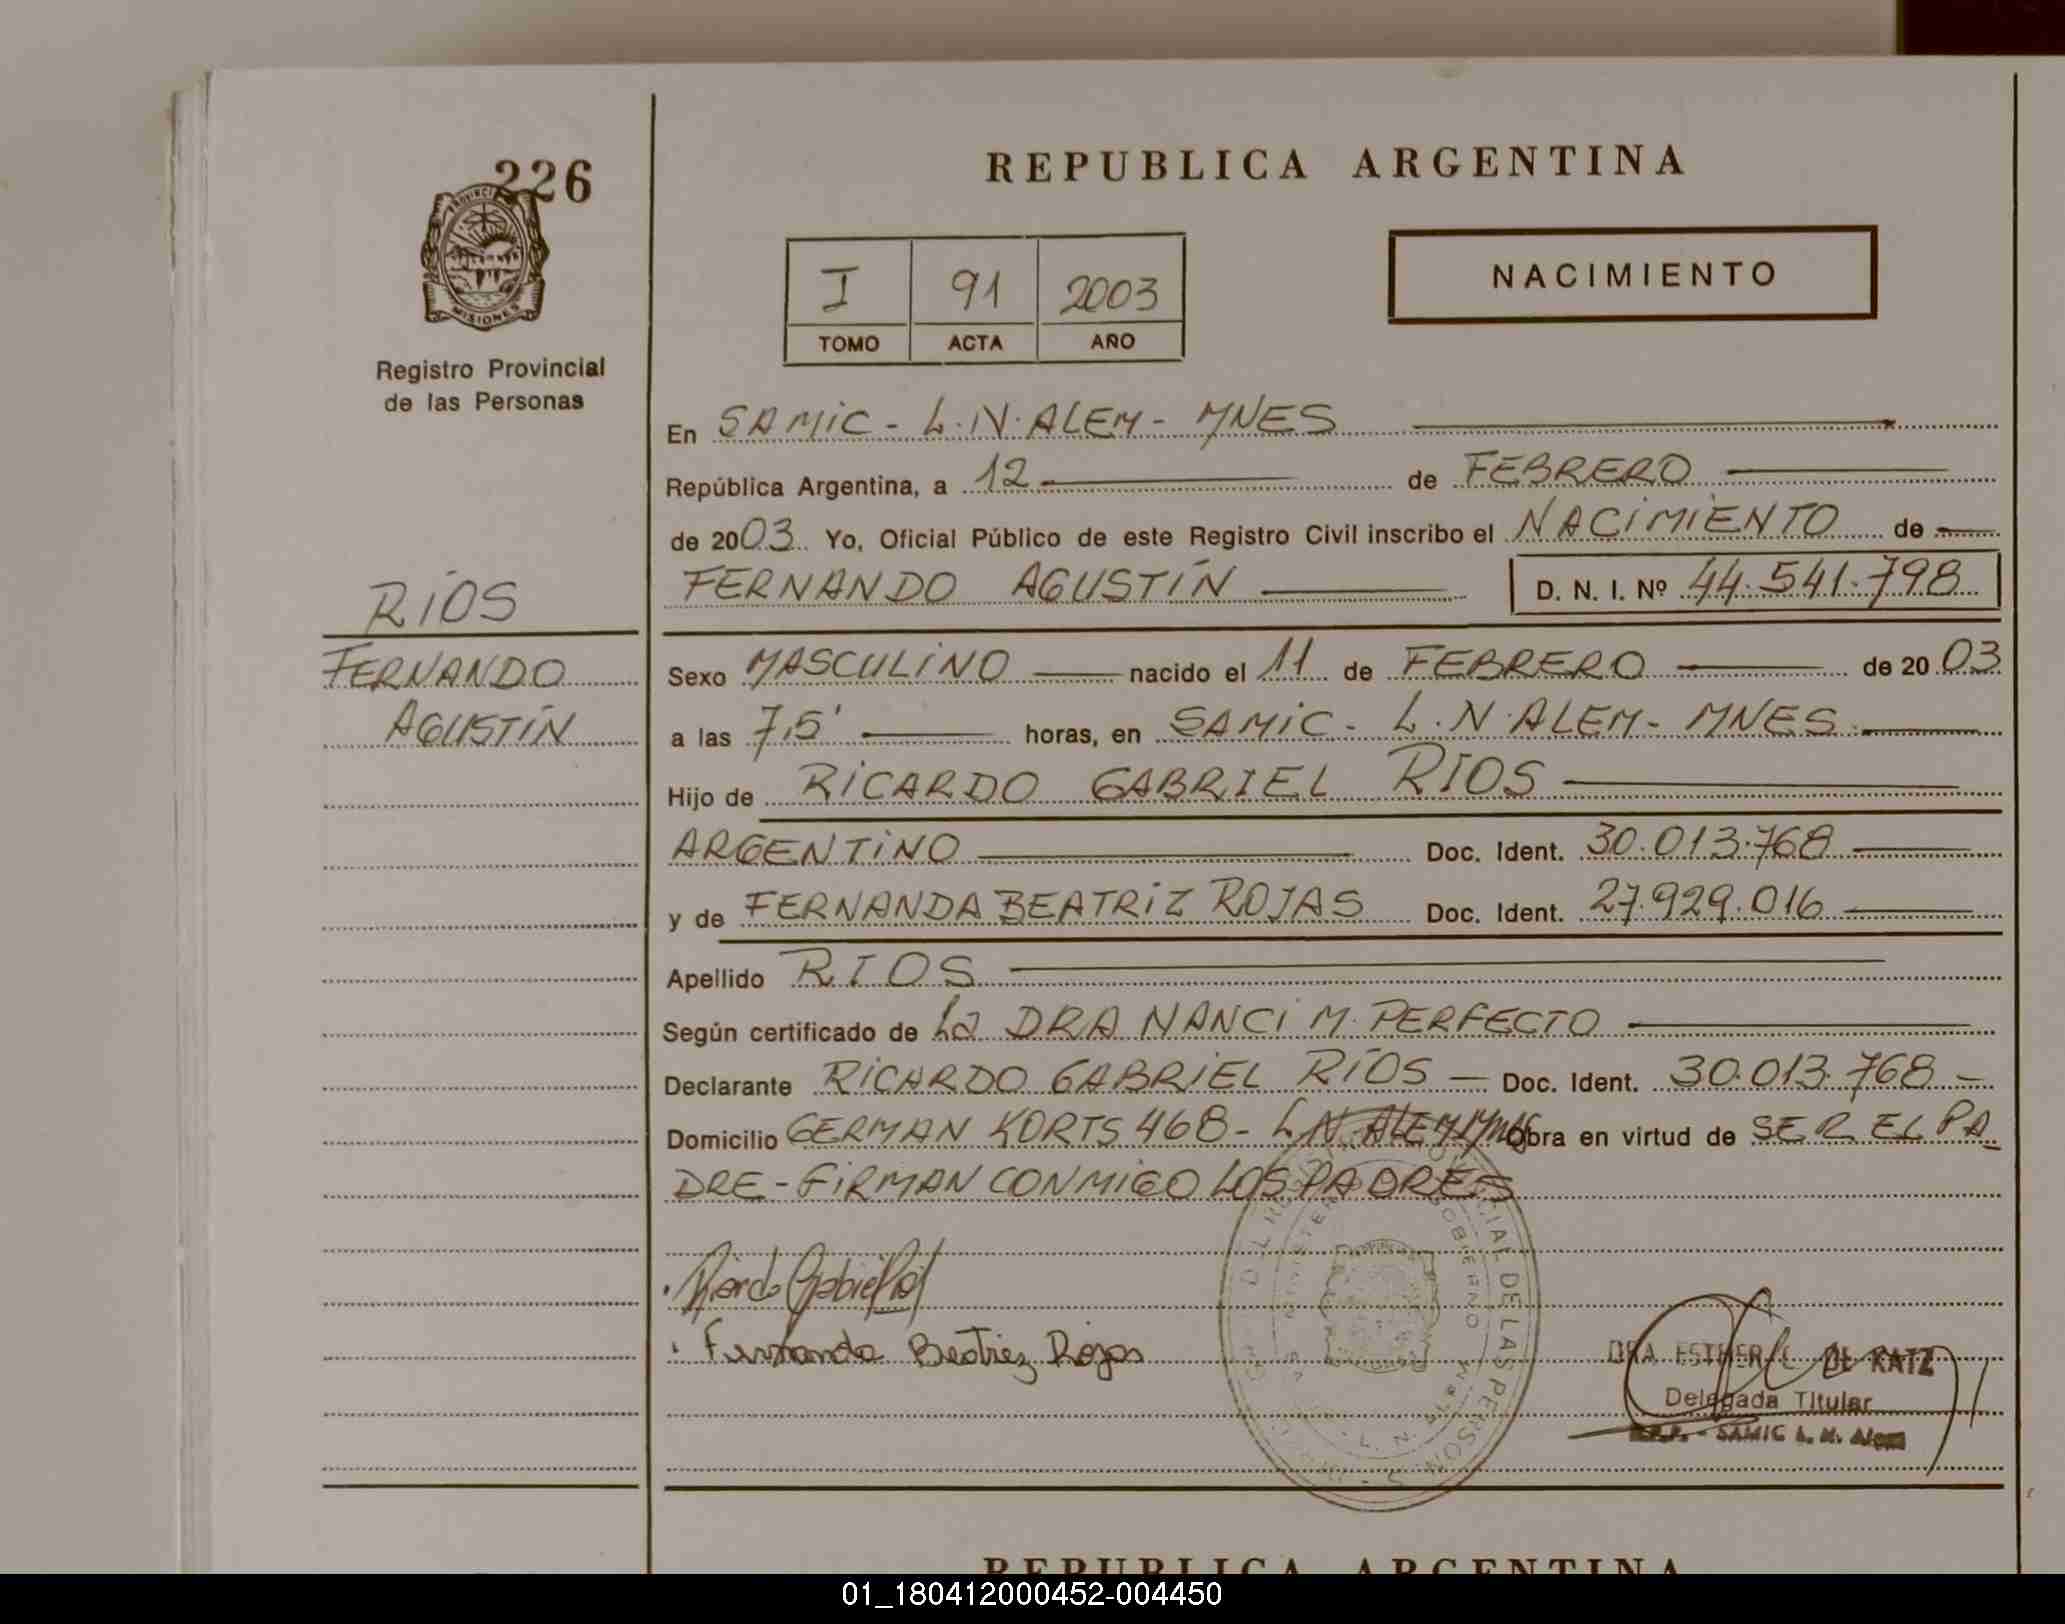 226
PROVINCIA
MISIONES
Registro Provincial
de las Personas
RÍOS
FERNANDO
AGUSTÍN
REPUBLICA ARGENTINA
I 91 2003
TOMO ACTA AÑO
NACIMIENTO
En SAMIC - L.N. ALEM - MNES
República Argentina, a 12 de FEBRERO
de 2003 Yo, Oficial Público de este Registro Civil inscribo el NACIMIENTO de
FERNANDO AGUSTÍN D. N. I. Nº 44.541.798
Sexo MASCULINO nacido el 11 de FEBRERO de 2003
a las 7,5' horas, en SAMIC - L.N. ALEM - MNES
Hijo de RICARDO GABRIEL RIOS
ARGENTINO Doc. Ident. 30.013.768
y de FERNANDA BEATRIZ ROJAS Doc. Ident. 27.929.016
Apellido RIOS
Según certificado de La DRA NANCI M. PERFECTO
Declarante RICARDO GABRIEL RÍOS - Doc. Ident. 30.013.768 -
Domicilio GERMAN KORTS 468 - L N ALEM Mnes Obra en virtud de SER EL PA_
DRE - FIRMAN CONMIGO LOS PADRES
Ricardo Gabriel
Fernanda Beatriz Rojas
DRA ESTHER C. DE KATZ
Delegada Titular
R.P.P. - SAMIC L. N. Alem
REPUBLICA ARGENTINA
01_180412000452-004450